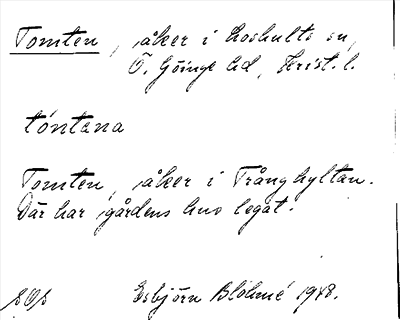 Tomten, åker i Loshults sn,
Ö. Göinge hd, Krist. l.
tóntana
Tomten, åker i Trånghyltan.
Där har gårdens hus legat.
Esbjörn Blohmé 1948.